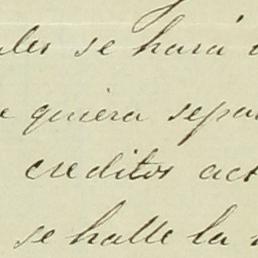 les se hará
quiera sepa
creditos act
se halle la